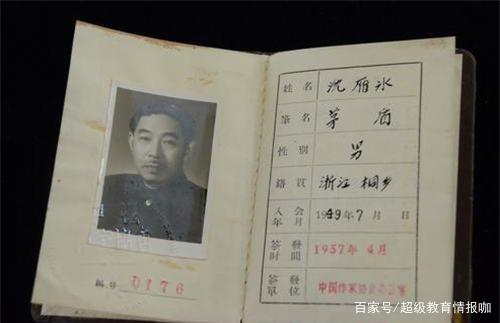 編号 0176
姓名 沈雁冰
筆名 茅盾
性别 男
籍貫 浙江 桐乡
入会年月 1949年7月 日
签發时間 1957年4月
签發單位 中国作家协会办公室
百家号/超级教育情报咖